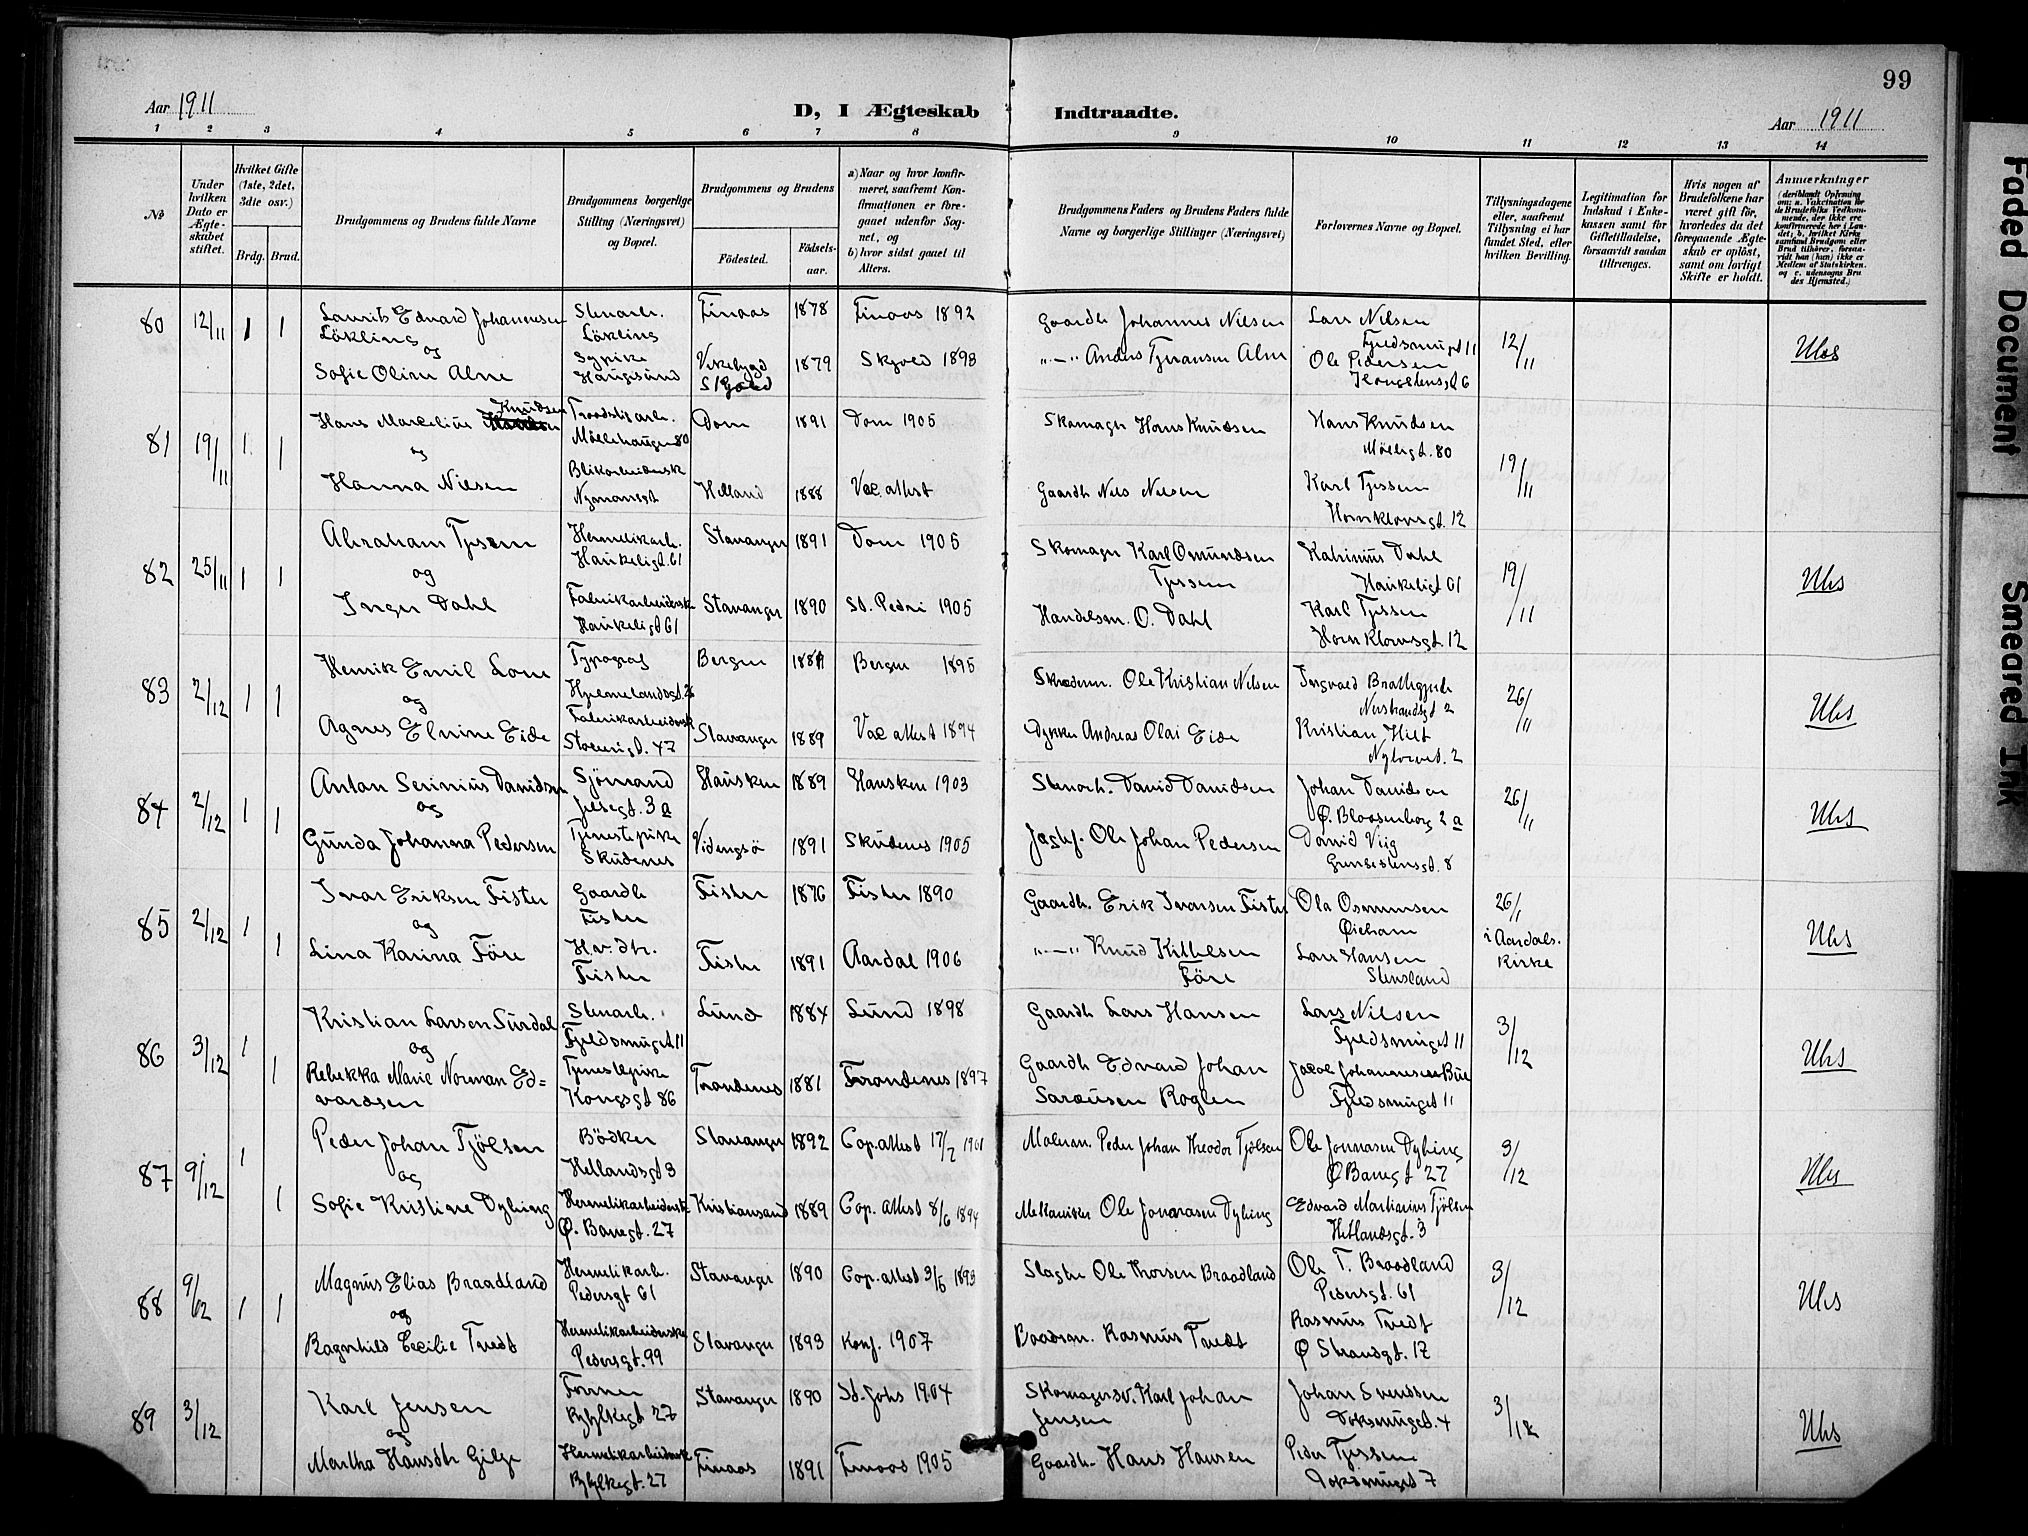 99
Aar 1911
D, I Ægteskab Indtraadte.
Aar 1911
1 2 3 4 5 6 7 8 9 10 11 12 13 14
No
Under hvilken Dato er Ægteskabet stiftet.
Hvilket Gifte (1ste, 2det, 3die osv.)
Brdg. Brud.
Brudgommens og Brudens fulde Navne
Brudgommens borgerlige Stilling (Næringsvei) og Bopæl.
Brudgommens og Brudens
Födested. Födselsaar.
a) Naar og hvor konfirmeret, saafremt Konfirmationen er foregaaet udenfor Sognet, og
b) hvor sidst gaaet til Alters.
Brudgommens Faders og Brudens Faders fulde Navne og borgerlige Stillinger (Næringsvei)
Forlovernes Navne og Bopæl.
Tillysningsdagene eller, saafremt Tillysning ei har fundet Sted, efter hvilken Bevilling.
Legitimation for Indskud i Enkekassen samt for Giftetilladelse, forsaavidt saadan tiltrænges.
Hvis nogen af Brudefolkene har været gift för, hvorledes da det foregaaende Ægteskab er oplöst, samt om lovligt Skifte er holdt.
Anmærkninger
80 12/11 1 1 Laurits Edvard Johannesen Stenarb. Finaas 1878 Finaas 1892 Gaardb Johannes Nilsen Lars Nilsen 12/11
Løkling Løkling Fjeldsmuget 11
og
Sofie Oline Alne Sypike Haugesund Vikebygd Skjold 1879 Skjold 1898 Ole Pedersen
81 19/11 1 1 Hans Markelius Knudsen Dom 1891 Dom 1905 Skomager Hans Knudsen Hans Knudsen 19/11
Möllehaugen 80 Mölleigt. 80
og
Hanna Nilsen Blikarbeidersk Helland 1888 Vac. attest Gaardb Nils Nilsen Karl Tjessem
Hornklovsgt. 12
82 25/11 1 1 Abraham Tjessem Hermetikarb. Stavanger 1891 Dom 1905 Skomager Karl Osmundsen Katinius Dahl 19/11 Uhs
Haukeligt. 61 Tjessem Haukeligt 61
og
Inger Dahl Fabrikarbeidersk Stavanger 1890 St. Petri 1905 Handelsm. O. Dahl Karl Tjessem
Haukeligt 61 Hornklovsgt. 12
83 2/12 1 1 Henrik Emil Lone Typograf Bergen Bergen 1895 Skrædderm. Ole Kristian Nilsen 26/11 Uhs
Hjelmelandsgt. 26
og
Agnes Elvine Eide Fabrikarbeidersk Stavanger 1889 Vac attest 1894 Dykker Andreas Olai Eide Kristian Hilt
Nytorvet. 2
84 2/12 1 1 Antan Serinius Davidsen Sjömand Hausken 1889 Hausken 1903 Stenarb. David Davidsen Johan Davidsen 26/11 Uhs
Ø. Blaasenborg 2 a
og
Gunda Johanna Pedersen Tjenestepike Skudenes 1891 Skudenes 1905 Ole Johan Pedersen David Veig
85 2/12 1 1 Ivar Eriksen Fister Gaardb Fister Fister 1876 Fister 1890 Gaardb. Erik Ivarsen Fister Ola Osmunsen 26/
Øieham i Aardals. Kirke Uhs
og
Lina Karina Före H.v.dtr. Fister Fister 1891 Aardal 1906 „ — „ Knud Kittelsen Före Lars Hansen
Stensland
86 3/12 1 1 Kristian Larsen Surdal Stenarb. Lund 1884 Lund 1898 Gaardb Lars Hansen Lars Nilsen 3/12 Uhs
Fjeldsmuget 11 Fjeldsmuget 11
og
Rebekka Marie Norman Edvardsen Tjenestepike Kongsgt 86 Trondenes 1881 Trondenes 1897 Gaardb Edvard Johan Jacob Johannesen Bue
Fjeldsmuget 11
87 9/12 1 1 Peder Johan Tjölsen Bödker Stavanger 1892 Cop. attest 17/2 1901 Malerm. Peder Johan Theodor Tjölsen Ole Jonnasen Dybing 3/12 Uhs
Hetlandsgt 3 Ø Banegt 27
og
Sofie Kristine Dybing Hermetikarbeidersk Kristiansand 1889 Cop. attest 8/6 1894 Mekaniker Ole Jonnasen Dybing Edvard Martinius Tjölsen
Ø. Banegt. 27 Hetlandsgt. 3
88 9/12 1 1 Magnus Elias Braadland Hermetikarb. Stavanger 1890 Cop. attest 1893 Slagter Ole Thorsen Braadland Ole T. Braadland 3/12 Uhs
Pedersgt 61 Pedersgt. 61
og
Ragnhild Cecilie Tvedt Hermetikarbeiderske Stavanger 1893 Konf. 1907 Baadsm. Rasmus Tvedt Rasmus Tvedt
Pedersgt. 99 Ø Strandgt. 12
89 3/12 Karl Jensen Former Stavanger 1890 St. Johs 1904 Skomagersv. Karl Johan Jensen Johan Svendsen 3/12 Uhs
Ryfylkegt 27
og
Martha Hansdtr Gilje Hermetikarbeidersk Finaas 1891 Finaas 1905 Gaardb. Hans Hansen Peder Tjessem
Ryfylkegt. 27
Faded Document
Smeared Ink